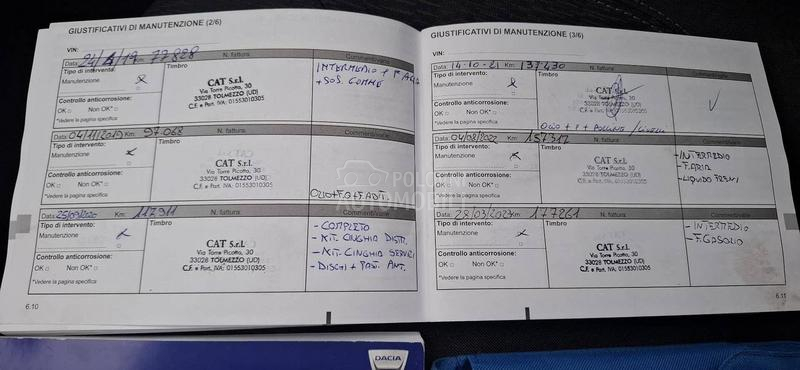 GIUSTIFICATIVI DI MANUTENZIONE (2/6)
VIN:
Data: 24/ /19 77828 N. fattura: Commenti/varie
Tipo di intervento: Timbro
Manutenzione x
CAT S.r.l.
Via Torre Picotta, 30
33028 TOLMEZZO (UD)
C.F. e Part. IVA: 01553010305
INTERMEDIO +
+ SOS. GOMME
Controllo anticorrosione:
OK □ Non OK* □
*Vedere la pagina specifica
Data: 04/11/2019 Km: 97.068 N. fattura: Commenti/varie
Tipo di intervento: Timbro
Manutenzione x
CAT S.r.l.
Via Torre Picotta, 30
33028 TOLMEZZO (UD)
C.F. e Part. IVA: 01553010305
Controllo anticorrosione:
OK □ Non OK* □
*Vedere la pagina specifica
OLIO+F.O+F.
Data: 25/09/2020 Km: 117311 N. fattura: Commenti/varie
Tipo di intervento: Timbro
Manutenzione x
CAT S.r.l.
Via Torre Picotta, 30
33028 TOLMEZZO (UD)
C.F. e Part. IVA: 01553010305
- COMPLETO
- KIT. CINGHIA DISTR.
- KIT. CINGHIA SERVIZI
- DISCHI + PAST. ANT.
Controllo anticorrosione:
OK □ Non OK* □
*Vedere la pagina specifica
6.10
GIUSTIFICATIVI DI MANUTENZIONE (3/6)
VIN:
Data: 14-10-21 Km: 137430 N. fattura: Commenti/varie
Tipo di intervento: Timbro
Manutenzione x
CAT S.r.l.
Via Torre Picotta, 30
33028 TOLMEZZO (UD)
C.F. e Part. IVA: 01553010305
✓
Controllo anticorrosione:
OK □ Non OK* □
*Vedere la pagina specifica
OLIO + + POLLINE /
Data: 04/08/2022 Km: 157317 N. fattura: Commenti/varie
Tipo di intervento: Timbro
Manutenzione x
CAT S.r.l.
Via Torre Picotta, 30
33028 TOLMEZZO (UD)
C.F. e Part. IVA: 01553010305
- INTERMEDIO
- F.ARIA
- LIQUIDO FRENI
Controllo anticorrosione:
OK □ Non OK* □
*Vedere la pagina specifica
Data: 28/03/2023 Km: 177261 N. fattura: Commenti/varie
Tipo di intervento: Timbro
Manutenzione x
CAT S.r.l.
Via Torre Picotta, 30
33028 TOLMEZZO (UD)
C.F. e Part. IVA: 01553010305
- INTERMEDIO
- F.GASOLIO
Controllo anticorrosione:
OK □ Non OK* □
*Vedere la pagina specifica
6.11
DACIA